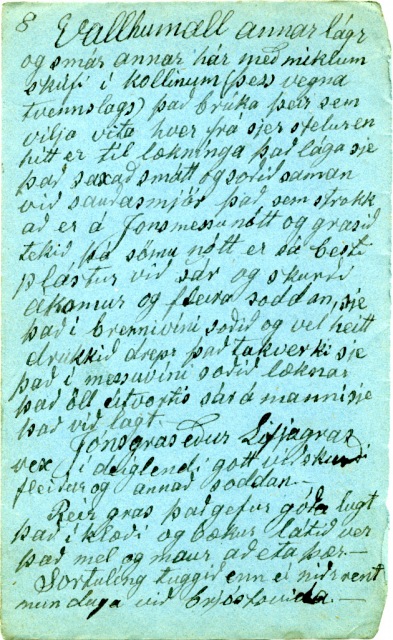 8 Vallhumall annar lágr
og smár annar hár med miklum
skúfi í kollinum (þess vegna
tvennslags) það brúka þeir sem
vilja vita hver frá sjer stelur en
hitt er til lækninga það lága sje
það saxað smátt og soðið saman
við sauðasmjör það sem strokk
að er á Jónsmessunótt og grasið
tekið þá sömu nótt er sá besti
plástur við sár og skurði
ákomur og fleira soddan, sje
það í brennivíni soðið og vel heitt
drukkið drepr það takverki sje
það í messuvíni soðið læknar
það öll útvortis sár á manni sje
það við lagt.
Jónsgras eður Lifjagras
vex í deiglendi gott við skurði
og annað soddan.—
Reir gras það gefur góða lugt
það í klæði og bækur látið ver
það mel og maur að eta þær.—
Sortulíng tuggið enn ei niðrrent
mun duga við brjóstsviða.—